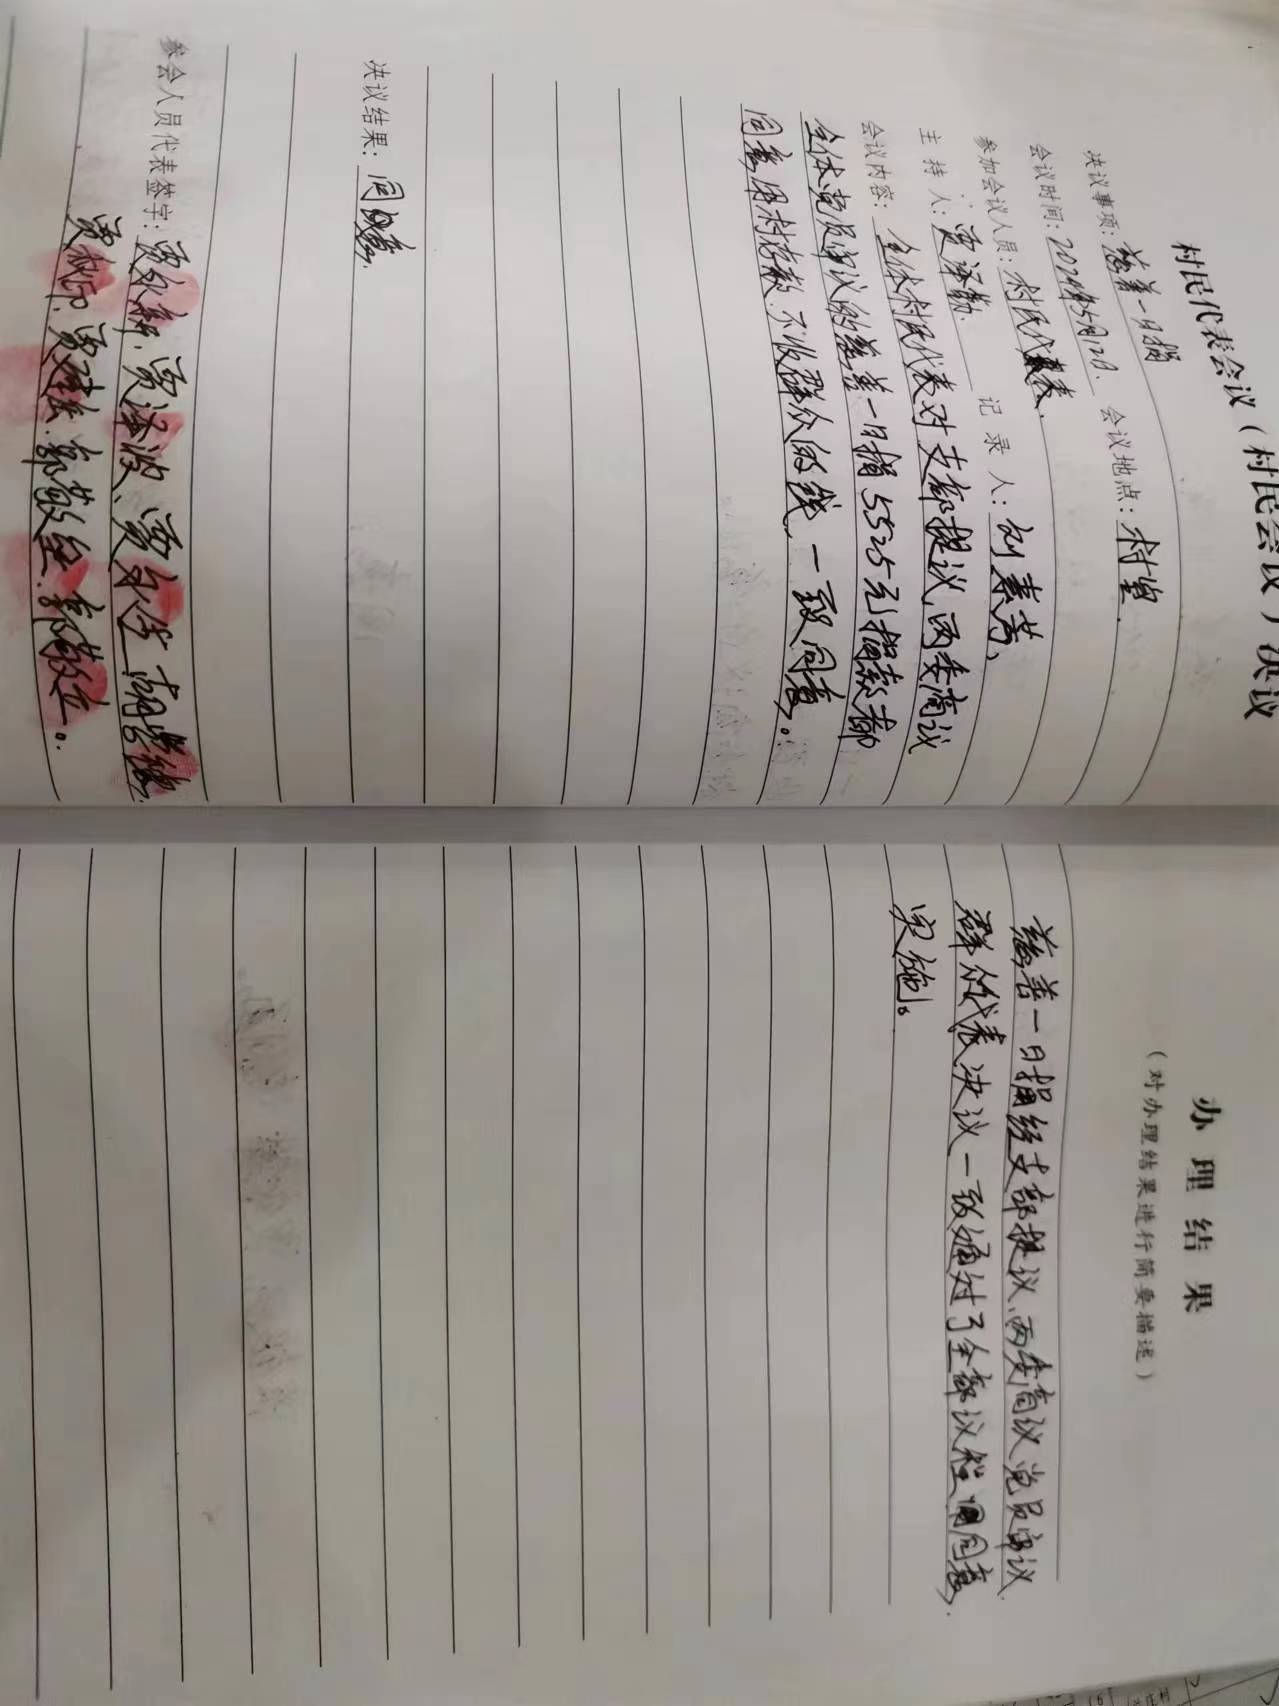 村民代表会议（村民会议）决议
决议事项：慈善一日捐
会议时间：2024年5月12日. 会议地点：村室.
参加会议人员：村民代表.
主持人：贾泽勤. 记录人：刘素芳、
会议内容：全体村民代表对支部提议、两委商议
全体党员审议的慈善一日捐5525元捐款都
同意用村存款.不收群众的钱.一致同意。
决议结果：同意.
参会人员代表签字：贾 贾泽波、贾
贾 郭敬 郭敬
办理结果
（对办理结果进行简要描述）
慈善一日捐经支部提议、两委商议党员审议
群众代表决议一致通过了全部议程同意.
实施。